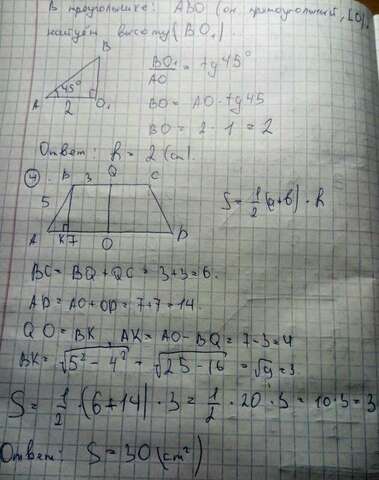 В треугольнике: ABO (он прямоугольный, LO),
найдём высоту (BO₁).
B
45°
A 2 O₁
BO₁/AO = tg 45°
BO = AO · tg 45
BO = 2 · 1 = 2
Ответ: h = 2 (см).
4
B 3 Q C
5
A K 7 O D
S = 1/2 (a+b) · h
BC = BQ + QC = 3+3 = 6.
AD = AO + OD = 7+7 = 14.
QO = BK, AK = AO - BQ = 7-3 = 4
BK = √5² - 4² = √25 - 16 = √9 = 3
S = 1/2 · (6+14) · 3 = 1/2 · 20 · 3 = 10 · 3 = 3
Ответ: S = 30 (см²)